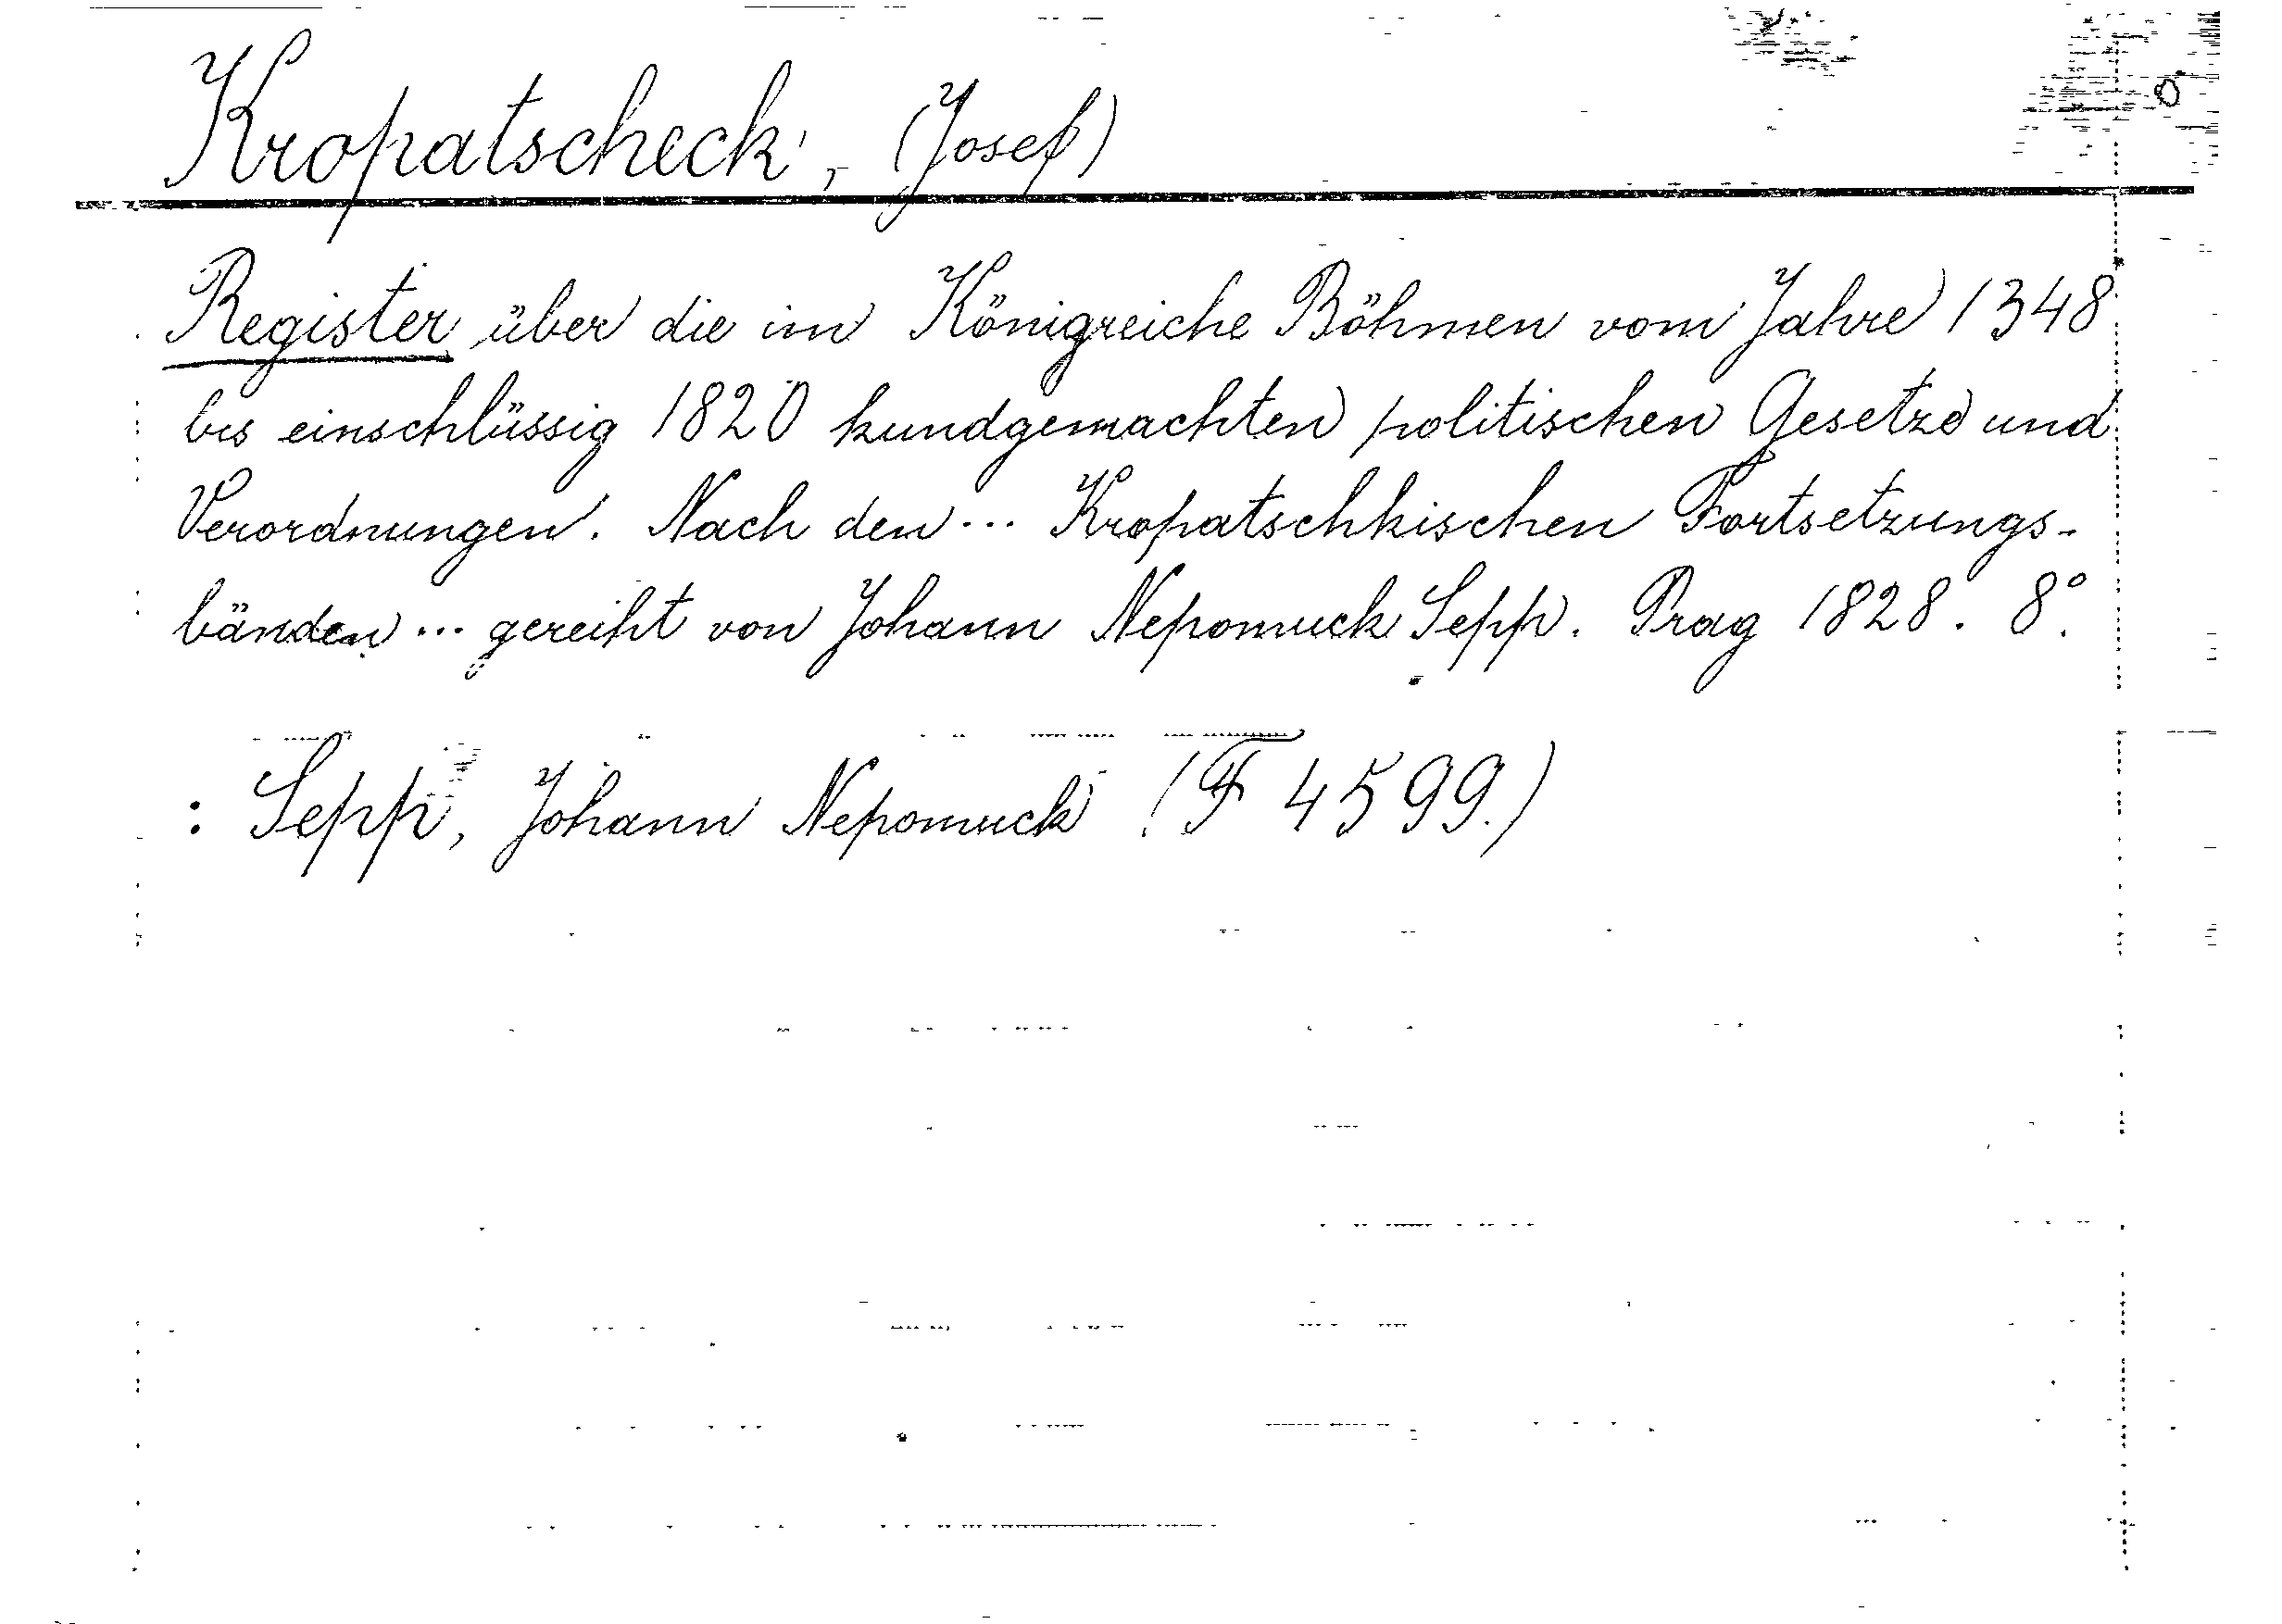 Kropatscheck, (Josef)
Register über die im Königreiche Böhmen vom Jahre 1348
bis einschlüssig 1820 kundgemachten politischen Gesetze und
Verordnungen. Nach den ... Kropatschkischen Fortsetzungs-
bänden ... gereiht von Johann Nepomuck Sepp. Prag 1828. 8°.
: Sepp, Johann Nepomuck (F 4599.)